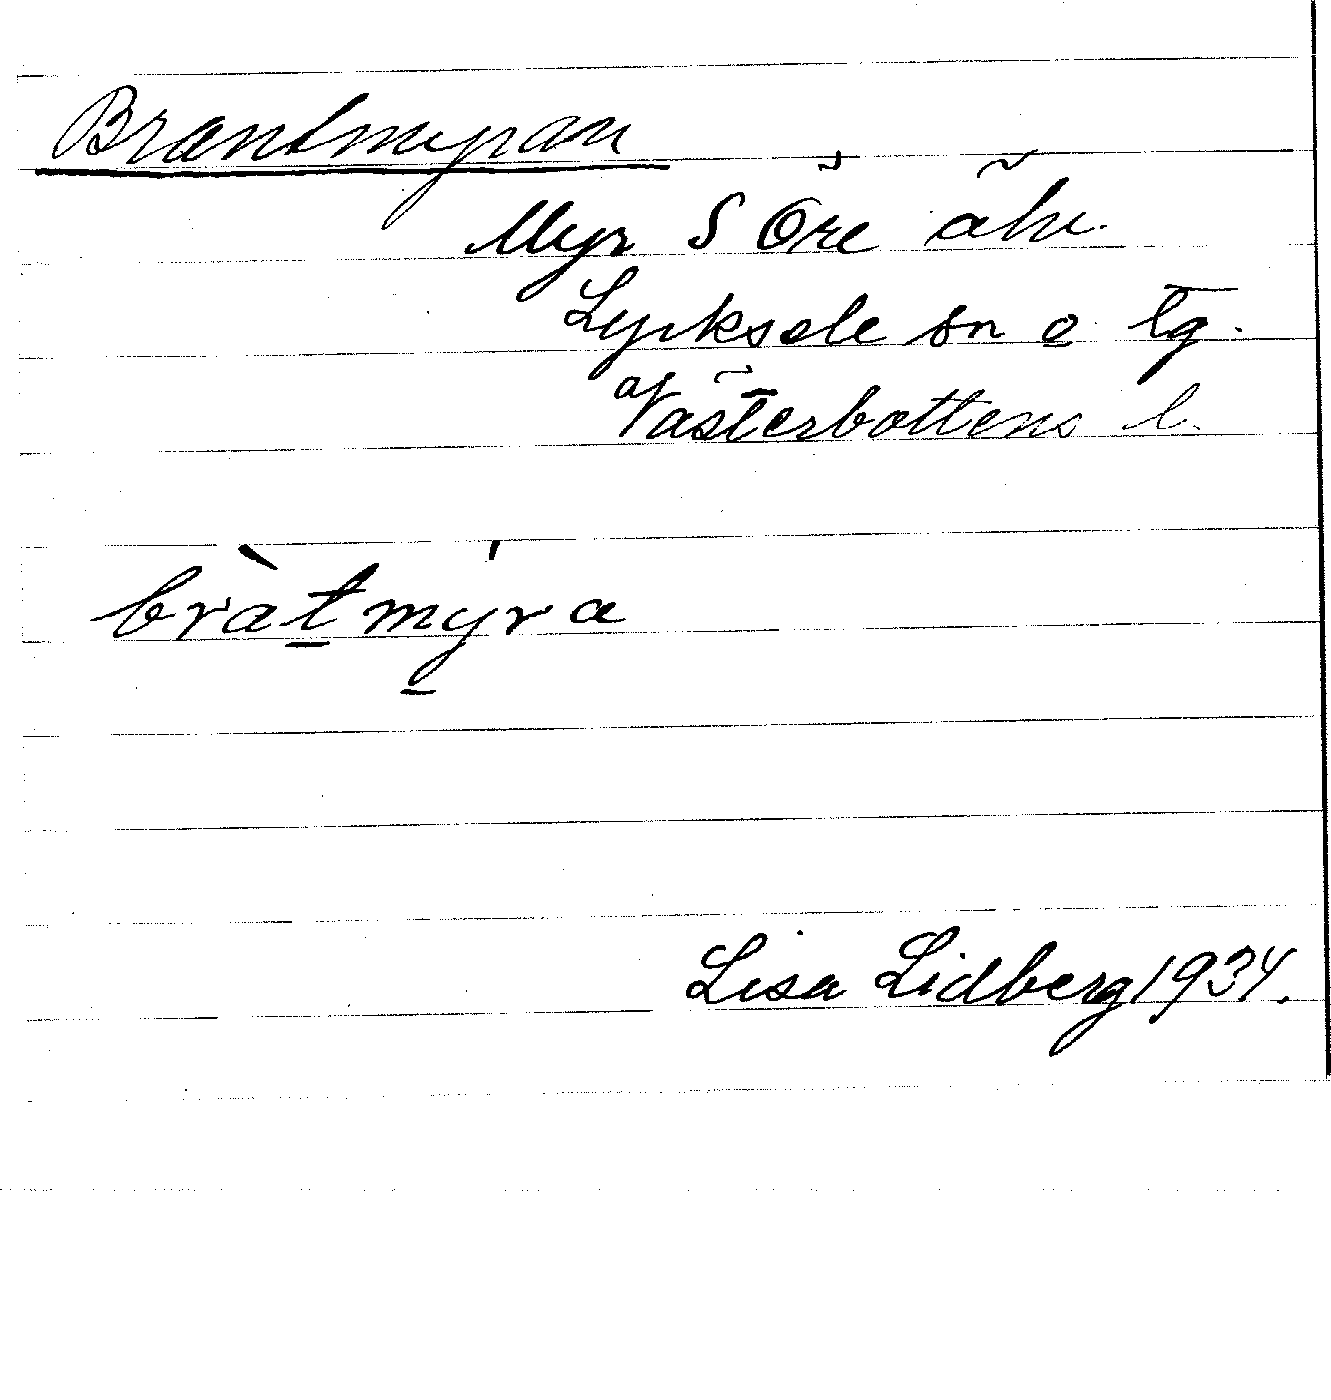 Brantmyran
Myr S Öre älv.
Lycksele sn o. tg.
av Västerbottens l.
bràtmýra
Lisa Lidberg 1934.